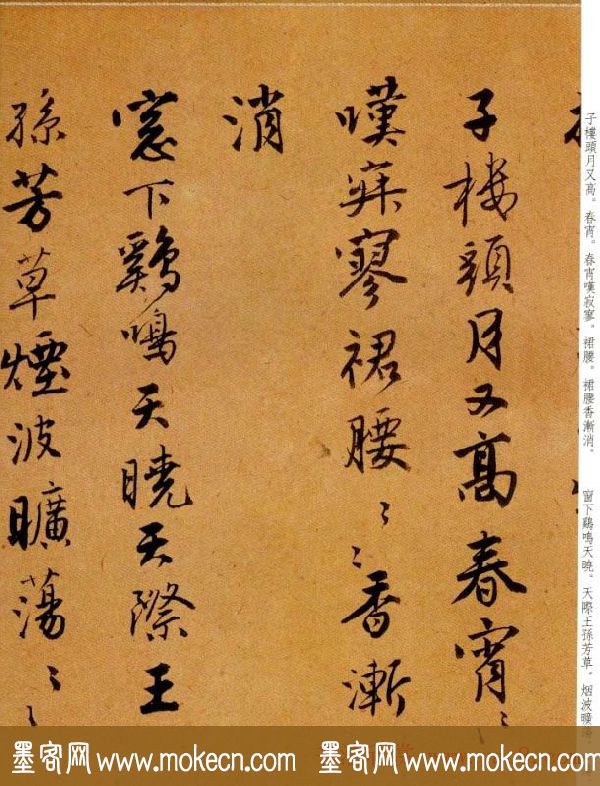 子樓頭月又高。春宵。春宵嘆寂寥。裙腰。裙腰香漸消。 窗下鷄鳴天曉。天際王孫芳草。烟波曠
子樓頭月又高春宵〻〻
嘆寂寥裙腰〻〻香漸
消
窓下鷄鳴天曉天際王
孫芳草煙波曠蕩〻〻
墨客网www.mokecn.com 墨客网www.mokecn.com